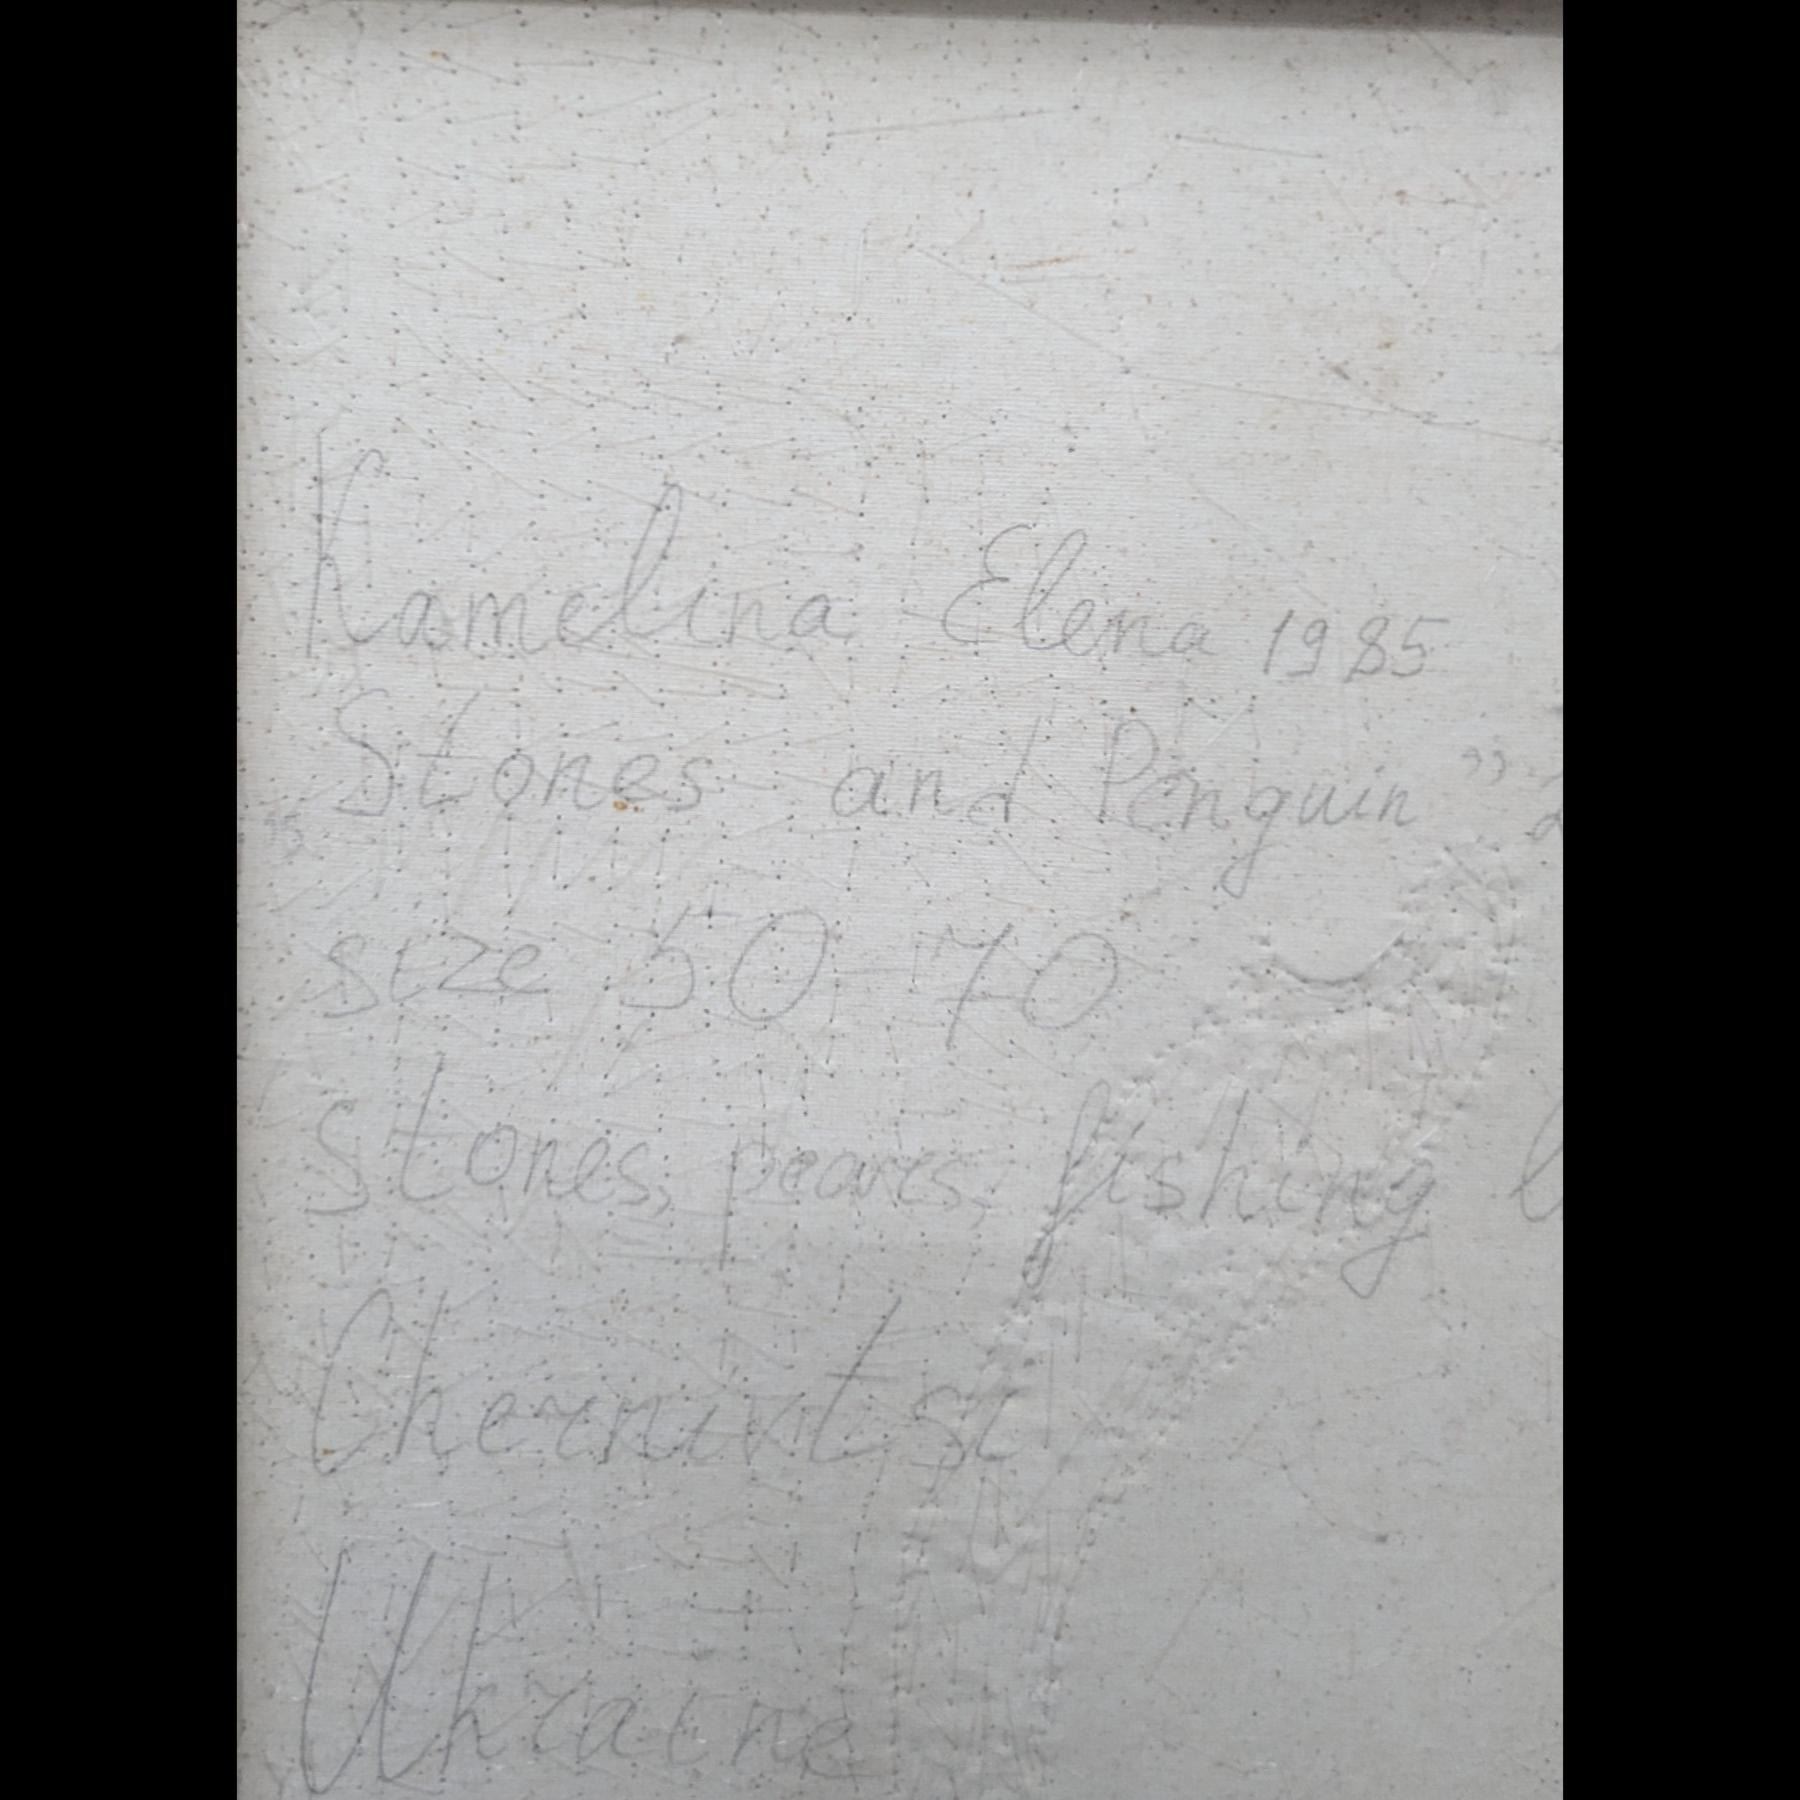 Kamelina Elena 1985
„Stones and Penguin”
size 50-70
Stones, pearls, fishing
Chernivtsi
Ukraine